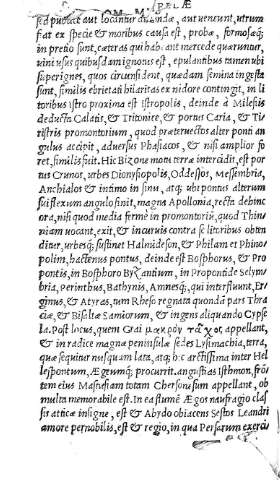 POM. MELÆ
sed publicæ aut locantur ducendæ, aut veneunt, utrum
fiat ex specie & moribus causa est, probæ, formosæq;
in pretio sunt, cæteras qui habeant mercede quæruntur,
vini usus quibusdam ignotus est, epulantibus tamen ubi
super ignes, quos circunsident, quædam semina ingesta
sunt, similis ebrietati hilaritas ex nidore contingit, in li
toribus istro proxima est istropolis, deinde à Milesiis
deducta Calatis, & Tritonice, & portus Caria, & Ti
ristris promontorium, quod præteruectos alter ponti an
gulus accipit, aduersus Phasiacos, & nisi amplior fo
ret, similis fuit. Hic Bizone motu terræ intercidit, est por
tus Crunos, urbes Dionysopolis, Odessos, Messembria,
Anchialos & intimo in sinu, atq; ubi pontus alterum
sui flexum angulo finit, magna Apollonia, recta dehinc
ora, nisi quod media fermè in promontoriũ, quod Thin
niam uocant, exit, & incuruis contra se litoribus obten
ditur, urbesq; sustinet Halmideson, & Philam et Phino
polim, hactenus pontus, deinde est Bosphorus, & Pro
pontis, in Bosphoro Byzantium, in Propontide Selym
bria, Perinthus, Bathynis, Amnesq; qui interfluunt, Er
ginus, & Atyras, tum Rheso regnata quondã pars Thra
ciæ, & Bisalthæ Samiorum, & ingens aliquando Cypse
la. Post locus, quem Grai μακρὸν τεῖχος, appellant,
& in radice magnæ peninsulæ sedes Lysimachia, terra,
quæ sequitur nusquam lata, atq; hic arctissima inter Hel
lespontum, Ægeumq; procurrit. angustias Isthmon, frõ
tem eius Mastusiam totam Chersonesum appellant, ob
multa memorabile est. In ea flumẽ Ægos naufragio clas
sis atticæ insigne, est & Abydo obiacens Sestos Leandri
amore pernobilis, est & regio, in qua Persarum exerci